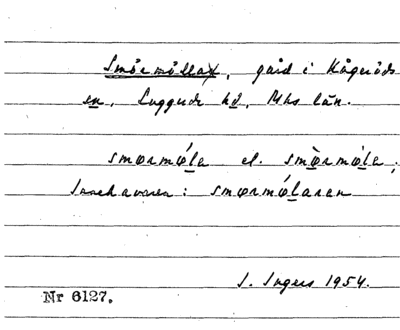 Smörmöllan, gård i Kågeröds
sn, Luggude hd, Mhs län.
smœrmǿla el. smœ̀rmø̀le;
smœrmǿlaren
I. Ingers 1954.
Nr 6127.